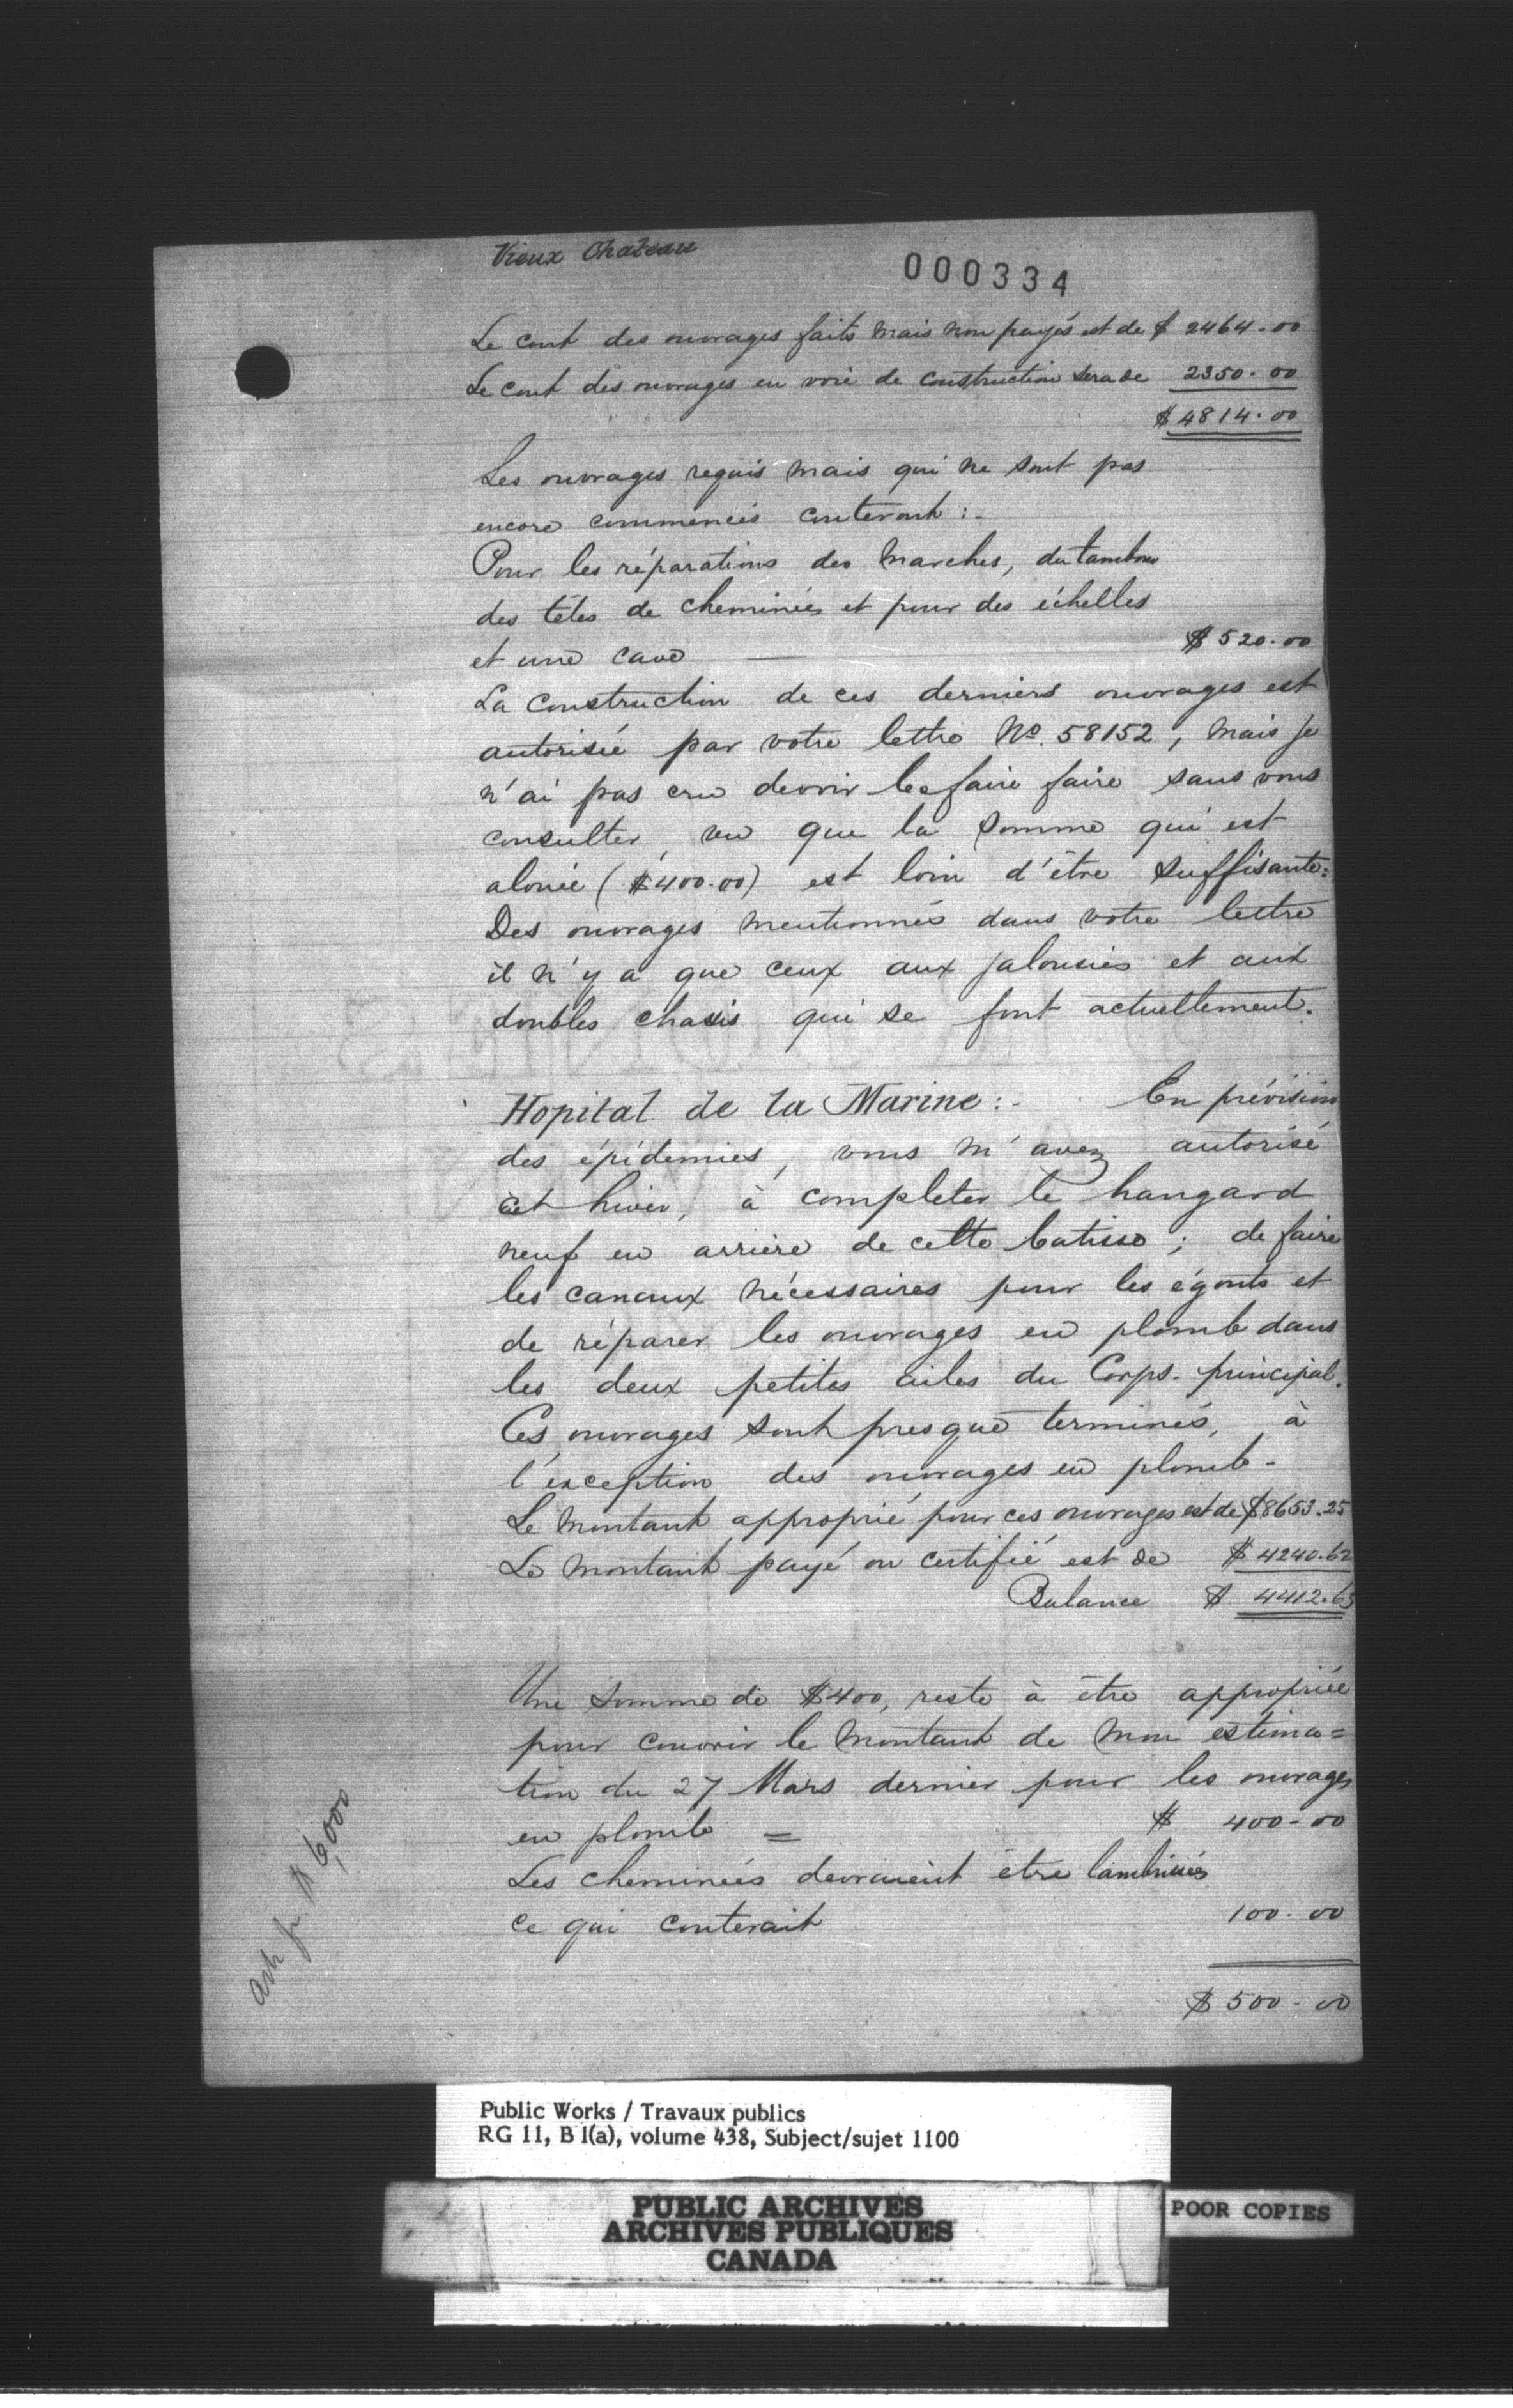 Vieux Chateau
000334
Le cout des ouvrages faits mais non payés est de $ 2464.00
Le cout des ouvrages en voie de construction sera de 2350.00
$ 4814.00
Les ouvrages requis mais qui ne sont pas
encore commencés couteront :-
Pour les réparations des marches, du tambour
des têtes de cheminées et pour des échelles
et une cave — $ 520.00
La construction de ces derniers ouvrages est
autorisée par votre lettre No. 58152, mais je
n'ai pas cru devoir les faire faire sans vous
consulter, vu que la somme qui est
alouée ($400.00) est loin d'être suffisante:
Des ouvrages mentionnés dans votre lettre
il n'y a que ceux aux jalousies et aux
doubles chassis qui se font actuellement.
Hopital de la Marine :- En prévision
des épidemies, vous m'avez autorisé
cet hiver, à completer le hangard
neuf en arrière de cette batisse ; de faire
les canaux nécessaires pour les égouts et
de réparer les ouvrages en plomb dans
les deux petites ailes du Corps-principal.
Ces ouvrages sont presque terminés, à
l'exception des ouvrages en plomb-
Le montant approprié pour ces ouvrages est de $8653.25
Le montant payé ou certifié est de $ 4240.62
Balance $ 4412.63
Une somme de $400, reste à être appropriée
pour couvrir le montant de mon estima=
tion du 27 Mars dernier pour les ouvrages
en plomb = $ 400-00
Les cheminées devraient être lambrissées
ce qui couterait 100.00
$ 500-00
$ 6,000
Public Works / Travaux publics
RG 11, B 1(a), volume 438, Subject/sujet 1100
PUBLIC ARCHIVES
ARCHIVES PUBLIQUES
CANADA
POOR COPIES